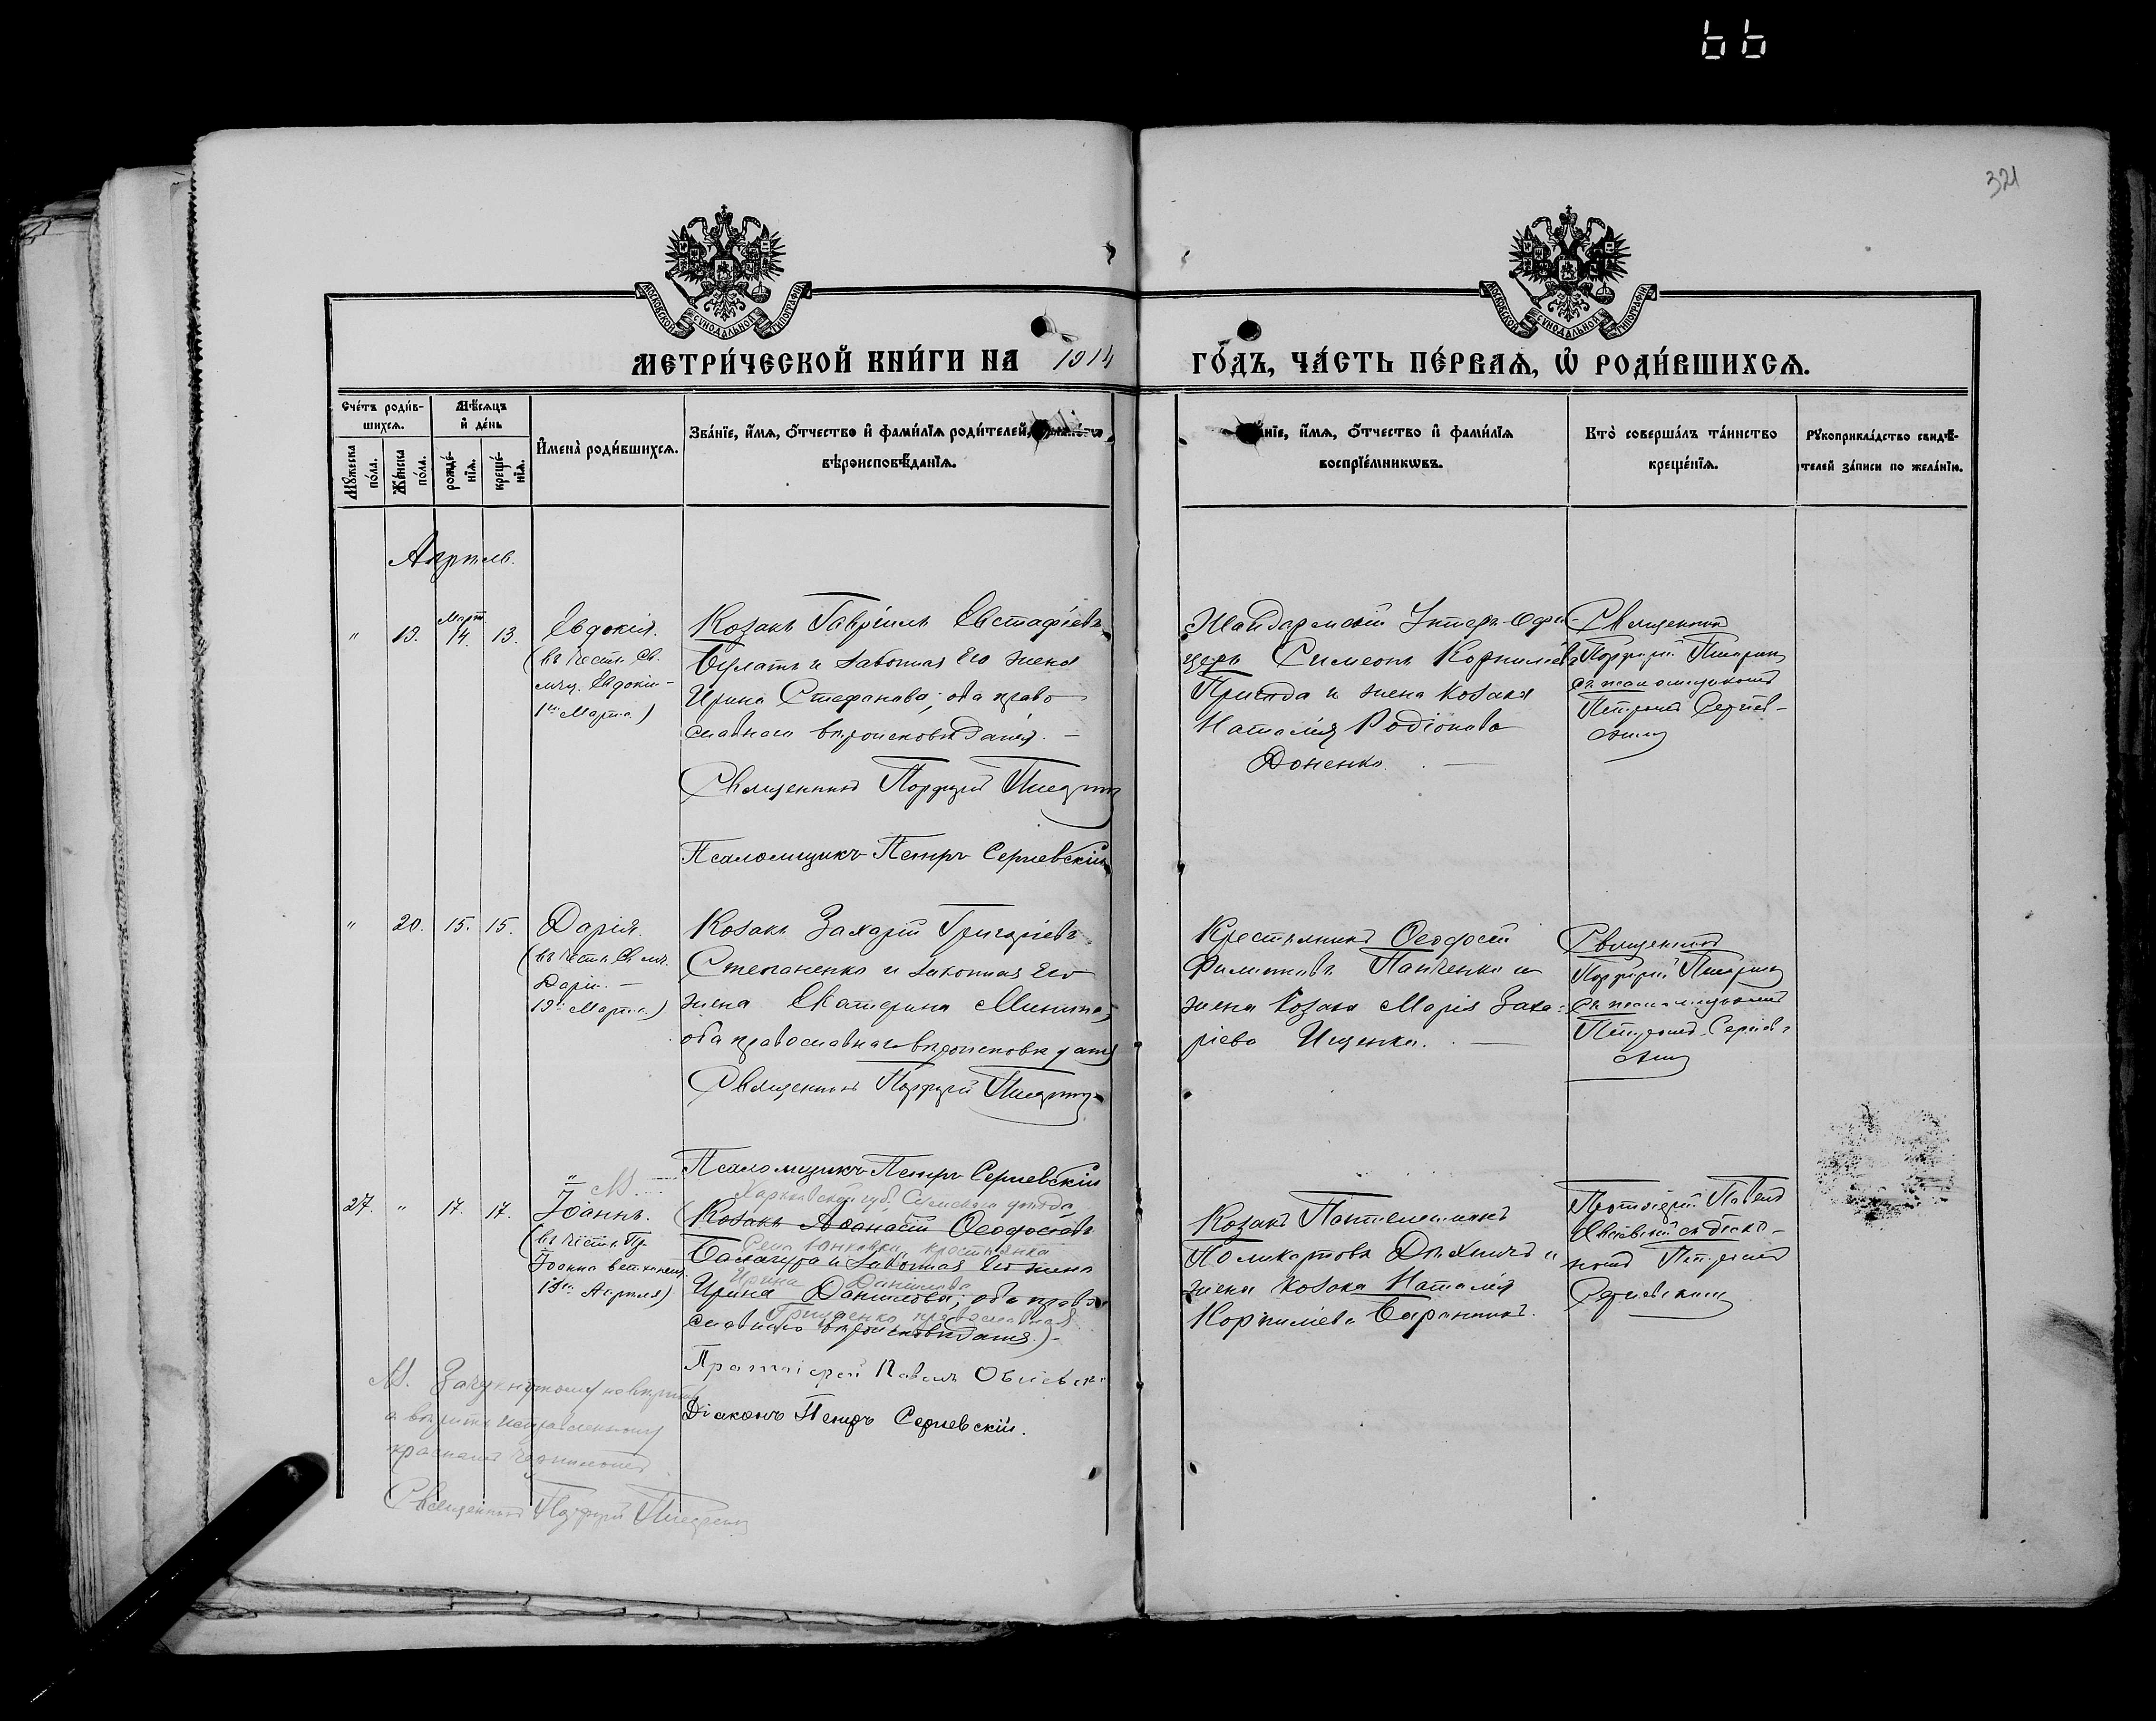 321
МОСКОВСКОЙ СУНОДАЛЬНОЙ ТИПОГРАФІИ
МОСКОВСКОЙ СУНОДАЛЬНОЙ ТИПОГРАФІИ
МЕТРИ́ЧЕСКОЙ КНИ́ГИ НА 1914 ГО́ДЪ, ЧА́СТЬ ПЕ́РВАѦ, Ѡ҆ РОДИ́ВШИХСѦ.
Сче́тъ роди́в-
шихсѧ.
Мꙋ́жеска по́ла.
Же́нска по́ла.
Мѣ́сѧцъ
и҆ де́нь
рожде́-
нїѧ.
креще́-
нїѧ.
И҆мена̀ роди́вшихсѧ.
Зва́нїе, и҆́мѧ, ѻ҆́тчество и҆ фами́лїѧ роди́телей,
вѣроисповѣ́данїѧ.
нїе, и҆́мѧ, ѻ҆́тчество и҆ фами́лїѧ
воспрїе́мникѡвъ.
Кто̀ соверша́лъ та́инство
креще́нїѧ.
Рꙋкоприкла́дство свидѣ́-
телей за́писи по жела́нїю.
Апрѣль.
" 19. Март 14. 13.
Евдокія.
(въ честь Св.
мчц. Евдокіи -
1го Марта)
Козакъ Гавріилъ Евстафіевъ
Булатъ и законная его жена
Ирина Стефанова; оба право
славнаго вѣроисповѣданія. -
Священникъ Порфирій
Псаломщикъ Петръ Сергіевскій
Жандармскій Унтеръ-Офи-
церъ Симеонъ Корниліевъ
и жена козака
Наталія Родіонова
Доненко.
Священникъ
Порфирій
съ псаломщикомъ
Петромъ Сергіев-
скимъ
" 20. 15. 15.
Дарія.
(въ честь Св. мч.
Даріи. -
19го Марта.)
Козакъ Захарій Григоріевъ
Степаненко и законная его
жена Екатерина Минина;
оба православнаго вѣроисповѣданія
Священникъ Порфирій
Псаломщикъ Петръ Сергіевскій
Крестьянинъ Ѳеодосій
Филипповъ Панченко и
жена козака Марія Заха-
ріева Ищенко.
Священникъ
Порфирій
съ псаломщикомъ
Петромъ Сергіев-
скимъ
27. " 17. 17.
Іоаннъ.
(въ честь Пр.
Іоанна ветхопещ.
19го Апрѣля)
Харьковской губ. Сумскаго уѣзда
(Козакъ Аѳанасій Ѳеодосіевъ
Села Юнковки, крестьянка
Балацура и законная его жена
Ирина Даніилова
Ирина Даніилова; оба право
Грищенко православная
славнаго вѣроисповѣданія.) -
Протоіерей Павелъ
Діаконъ Петръ Сергіевскій.
Козакъ Пантелеимонъ
Поликарповъ и
жена козака Наталія
Корниліева
Протоіерей Павелъ
съ діако-
номъ Петромъ
Сергіевскимъ
Зачеркнутому не вѣрить,
а вѣрить исправленному
красными чернилами
Священникъ Порфирій